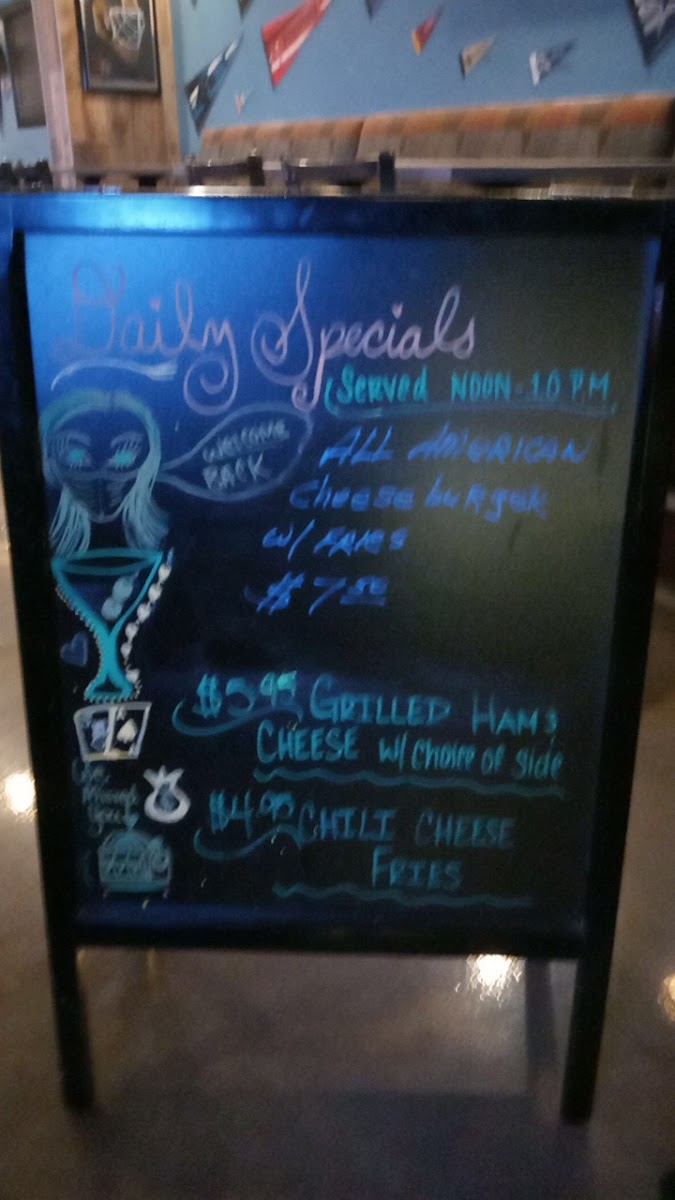 Daily Specials
Served NOON-10 P.M.
WELCOME
BACK
ALL AMERICAN
Cheeseburger
w/ FRIES
$5.95 GRILLED HAM &
CHEESE w/ choice of side
$4.95 CHILI CHEESE
FRIES